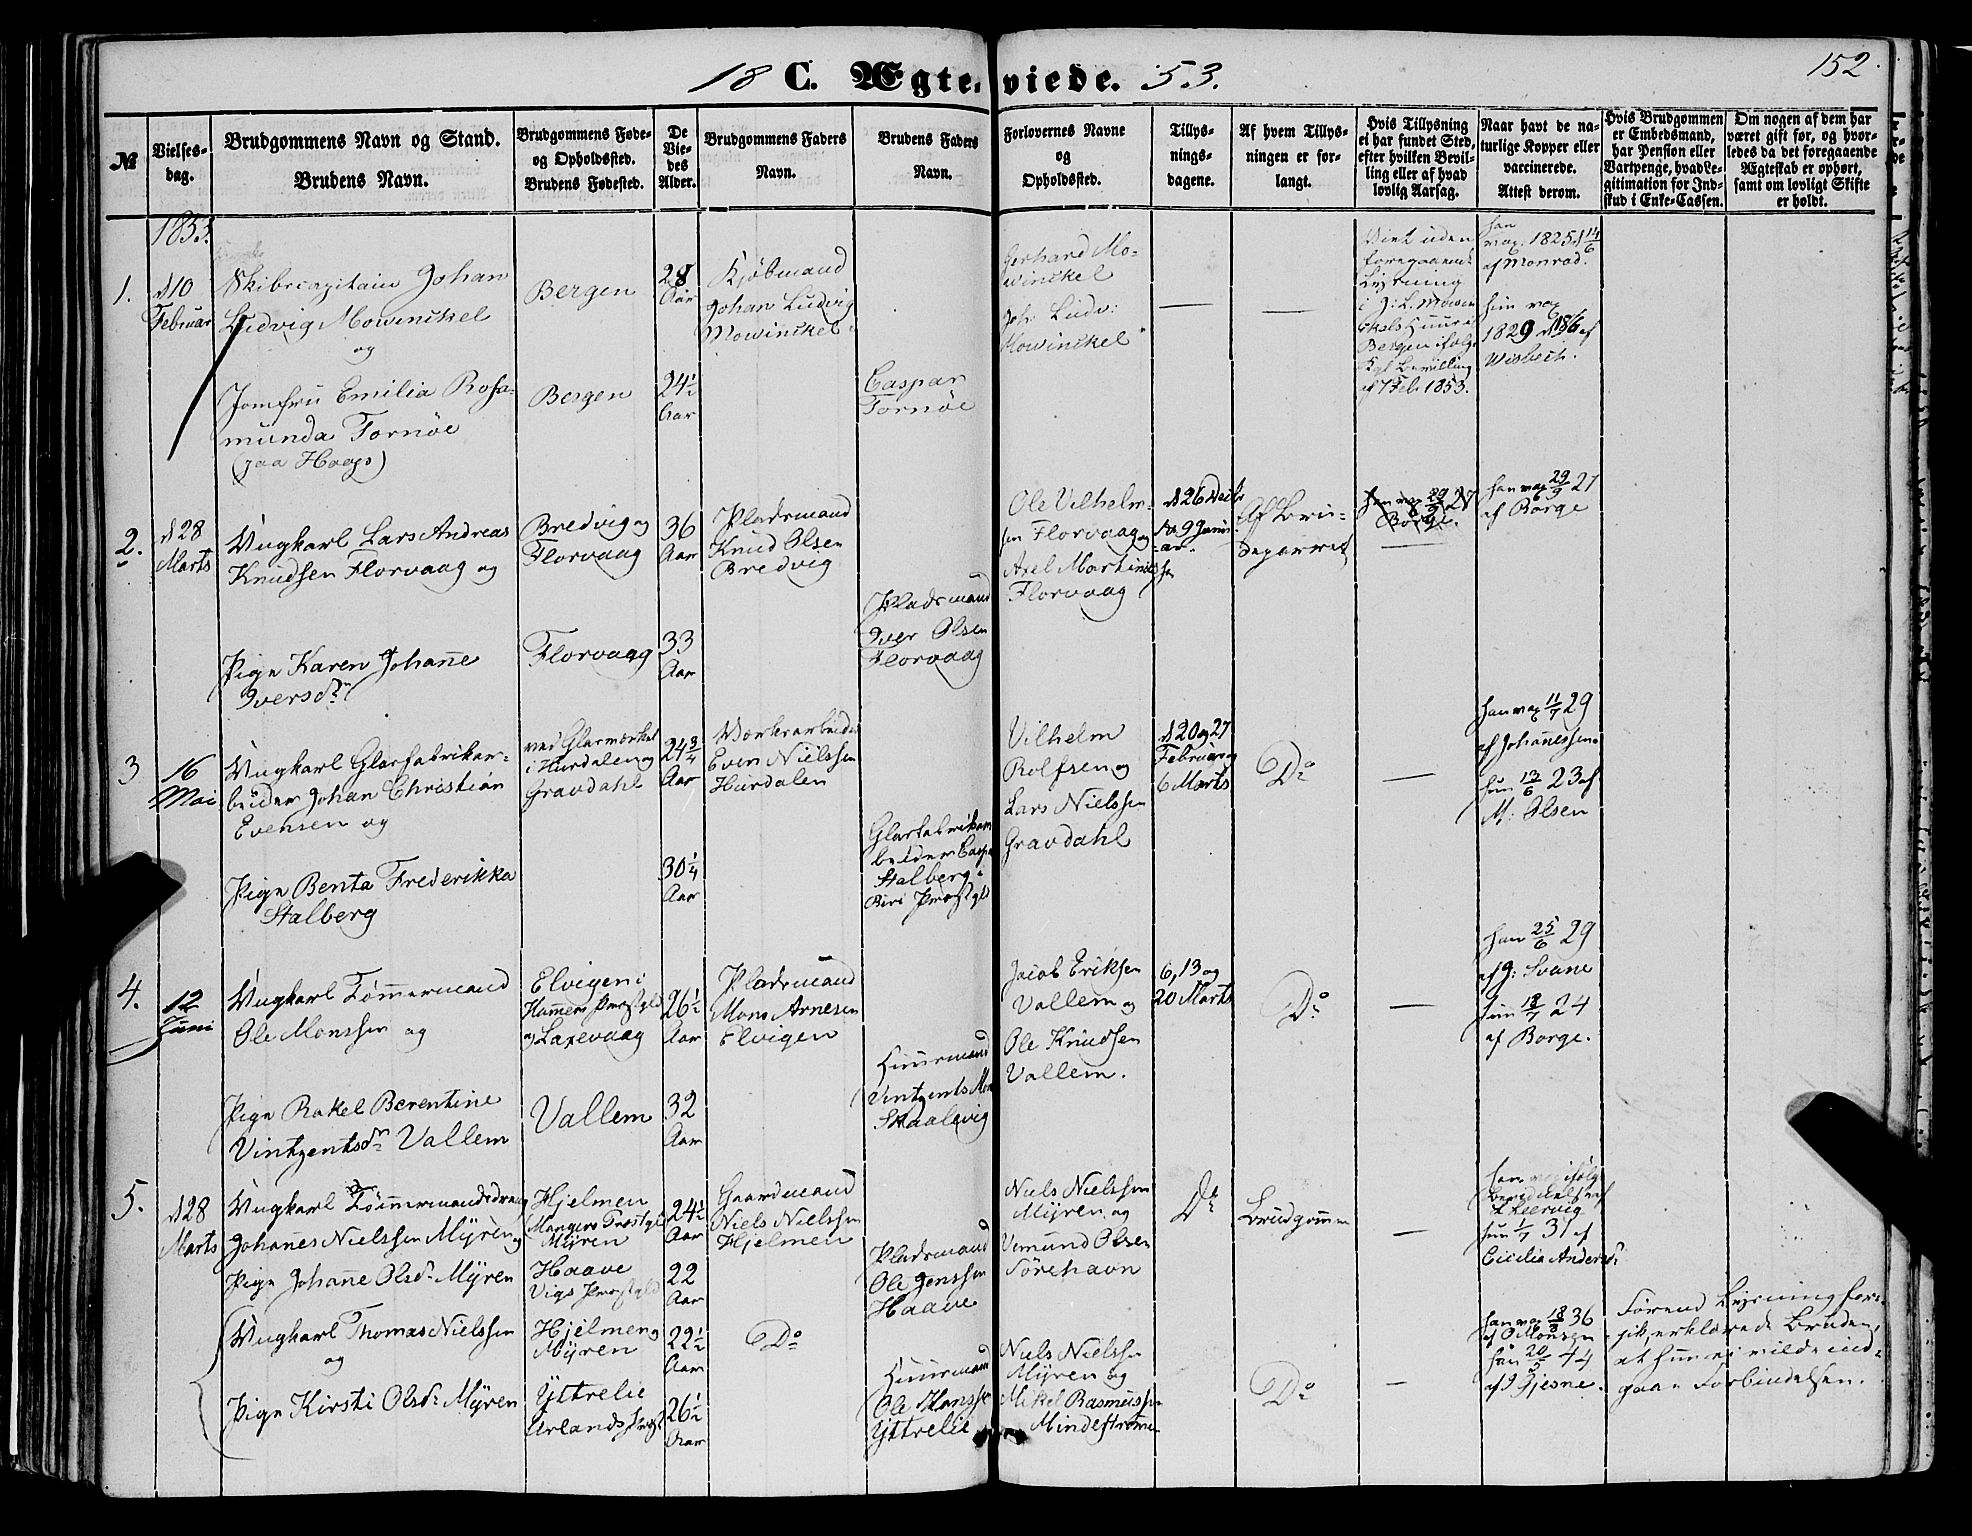 152.
18 C. Ægteviede. 53.
№
Vielses-
dag.
Brudgommens Navn og Stand.
Brudens Navn.
Brudgommens Føde-
og Opholdssted.
Brudens Fødested.
De
Vie-
des
Alder.
Brudgommens Faders
Navn.
Brudens Faders
Navn.
Forlovernes Navne
og
Opholdssted.
Tillys-
nings-
dagene.
Af hvem Tillys-
ningen er for-
langt.
Hvis Tillysning
ei har fundet Sted,
efter hvilken Bevil-
ling eller af hvad
lovlig Aarsag.
Naar havt de na-
turlige Kopper eller
vaccinerede.
Attest derom.
Hvis Brudgommen
er Embedsmand,
har Pension eller
Vartpenge, hvad Le-
gitimation for Ind-
skud i Enke-Cassen.
Om nogen af dem har
været gift før, og hvor-
ledes da det foregaaende
Ægteskab er ophørt,
samt om lovligt Skifte
er holdt.
1853.
1.
d 10
Februar
Skibscapitain Johan
Ludvig Mowinckel
og
Jomfru Emilia Rosa-
munda Fornøe
(paa Haags)
Bergen
Bergen
28
Aar
24½
Aar
Kjøbmand
Johan Ludvig
Mowinckel
Caspar
Fornøe
Gerhard Mo-
winckel
Joh: Ludv:
Mowinckel
Viet uden
foregaaende
Lysning
i J: L. Mowin
ckels Huus i
Bergen ifølge
Kgl Bevilling
af 7 Feb. 1853.
han
vax. 1825 d 14/6
af Monrad.
hun vax
1829 d 18/6 af
Wisbech.
2.
d 28
Marts
Ungkarl Lars Andreas
Knudsen Florvaag og
Pige Karen Johanne
Iversdr
Bredvig og
Florvaag
Florvaag
36
Aar
33
Aar
Pladsmand
Knud Olsen
Bredvig
Pladsmand
Iver Olsen
Florvaag
Ole Vilhelm-
sen Florvaag og
Axel Martinussen
Florvaag
d 26 Decbr
9 Janu-
ar.
Af Bru-
deparret
han vax 29/9 27
Borge.
han vax 29/9 27
af Borge
3
16
Mai
Ungkarl Glasfabrikar-
beider Johan Christian
Evensen og
Pige Benta Frederikka
Stalberg
ved Glasværket
i Hurdalen og
Gravdahl
24¾
Aar
30¼
Aar
Værksarbeider
Even Nielssen
Hurdalen
Glasfabrikar
beider Casper
Stalberg
Biri Præstgld
Vilhelm
Rolfsen og
Lars Nielssen
Gravdahl
d 20 og 27
Februar og
6 Marts
Do
han vax 11/7 29
af Johannessen.
hun 13/6 23 af
M: Olsen
4.
12
Juni
Ungkarl Tømmermand
Ole Monssen og
Pige Rakel Berentine
Vintzentsdr Vallem
Elvigen i
Hammers Præstgld
og Laxevaag
Vallem
26½
Aar
32
Aar
Pladsmand
Mons Arnesen
Elvigen
Huusmand
Vintzents Mons
Skaalevig
Jacob Eriksen
Vallem og
Ole Knudsen
Vallem.
6, 13 og
20 Marts
Do
han 25/6 29
af J: Svane
hun 18/7 24
af Borge.
5.
d 28
Marts
Ungkarl Tømmermandsdreng
Johannes Nielssen Myren og
Pige Johanne Olsdr Myren
Hjelmen
Mangers Præstgld
Myren
Haave
Vigs Præstgld
24½
Aar
22
Aar
Gaardmand
Niels Nielssen
Hjelmen
Pladsmand
Ole Jenssen
Haave
Niels Nielssen
Myren og
Vemund Olsen
Sørehavn
Do
Brudgommen
han vax ifølge
af
hun 1/7 31 af
Cicilia Andersdr
Ungkarl Thomas Nielssen
og
Pige Kirsti Olsdr Myren
Hjelmen og
Myren
Yttrelie
Urlands Præst
22½
Aar
26½
Aar
Do
Huusmand
Ole Hanssen
Yttrelie
Niels Nielssen
Myren og
Mikel Rasmussen
Mindestrømmen
Do
han vax 18/8 36
af O Monsen
hun 20/5 44
af I Gjesne.
Førend Lysning for-
gik, erklærede Bruden,
at hun ei vilde ind-
gaae Forbindelsen.